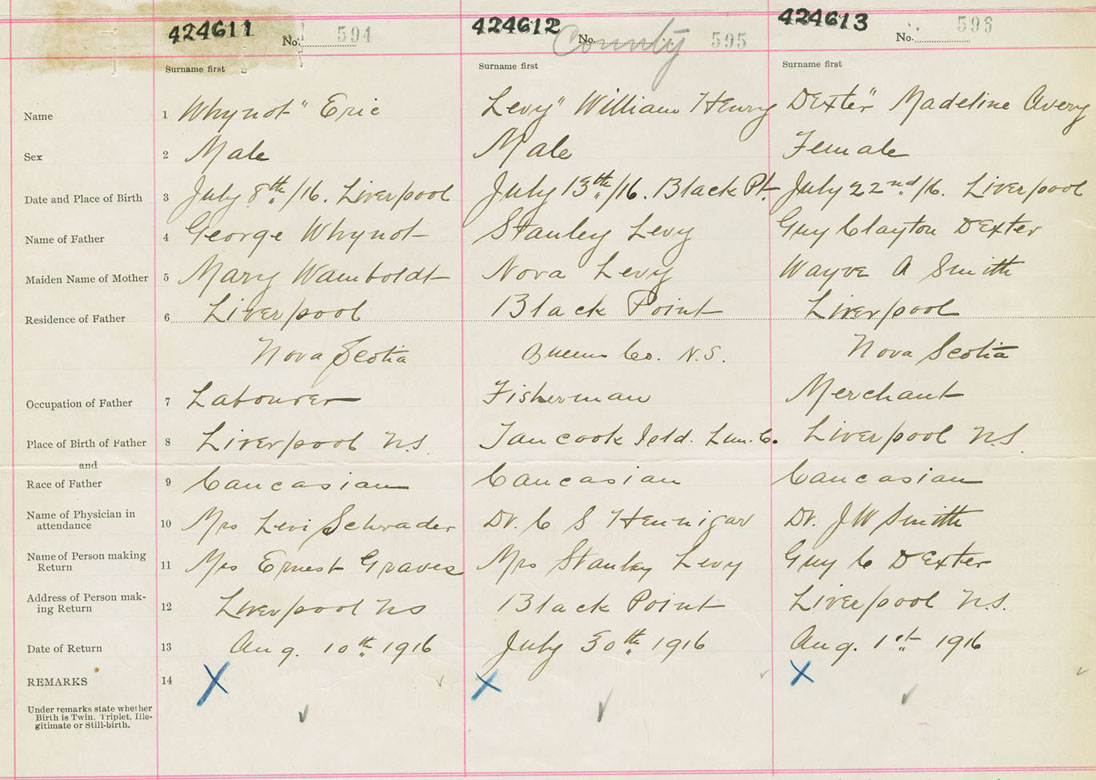 424611 No. 594 424612 No. County 595 424613 No. 593
Surname first Surname first Surname first
Name 1 Whynot" Eric Levy" William Henry Dexter" Madeline Avery
Sex 2 Male Male Female
Date and Place of Birth 3 July 8th/16. Liverpool July 13th/16. Black Pt. July 22nd/16. Liverpool
Name of Father 4 George Whynot Stanley Levy Guy Clayton Dexter
Maiden Name of Mother 5 Mary Wamboldt Nova Levy Wayve A Smith
Residence of Father 6 Liverpool Black Point Liverpool
Nova Scotia Queens Co. N.S. Nova Scotia
Occupation of Father 7 Labourer Fisherman Merchant
Place of Birth of Father 8 Liverpool N.S. Tancook Isld. Lun. Co. Liverpool N.S.
and
Race of Father 9 Caucasian Caucasian Caucasian
Name of Physician in
attendance 10 Mrs Levi Schrader Dr. C S Hennigar Dr. J W Smith
Name of Person making
Return 11 Mrs Ernest Graves Mrs Stanley Levy Guy C Dexter
Address of Person mak-
ing Return 12 Liverpool NS Black Point Liverpool N.S.
Date of Return 13 Aug. 10th 1916 July 30th 1916 Aug. 1st 1916
REMARKS 14 X X X
Under remarks state whether
Birth is Twin, Triplet, Ille-
gitimate or Still-birth.